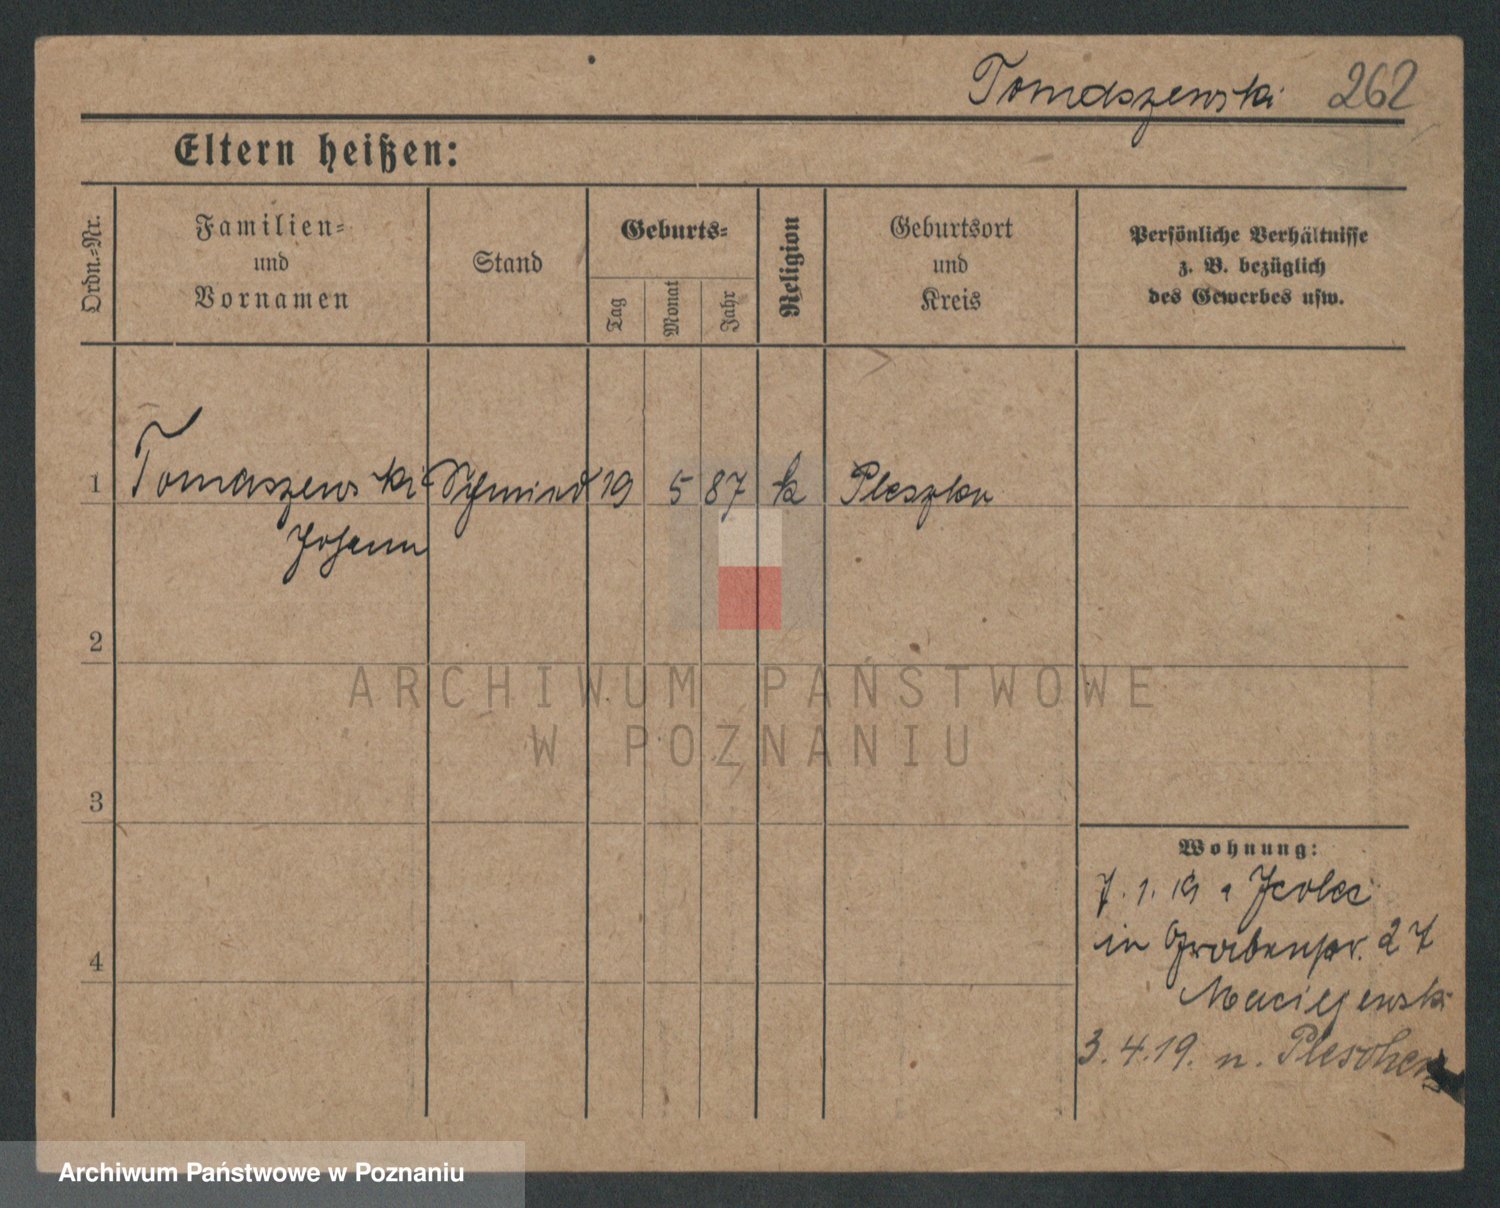 Tomaszewski 262
Eltern heißen:
Ordn.-Nr.
Familien- und Vornamen
Stand
Geburts-
Tag
Monat
Jahr
Religion
Geburtsort und Kreis
Persönliche Verhältnisse z. B. bezüglich des Gewerbes usw.
1 Tomaszewski Schmied 19 5 87 k
Johann
2
ARCHIWUM PAŃSTWOWE
W POZNANIU
3
Wohnung:
7.1.19
in Grabenstr. 27
4
Maciejewski
3.4.19. n. Pleschen
Archiwum Państwowe w Poznaniu